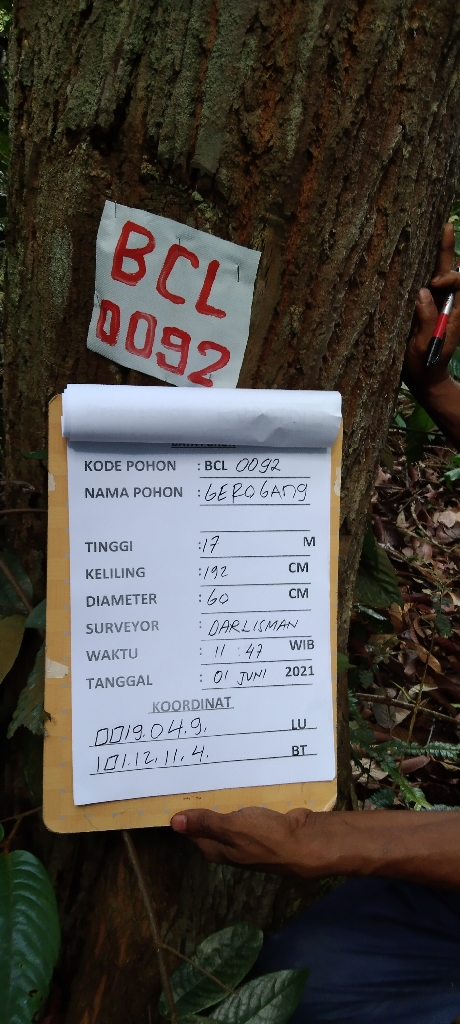 BCL
0092
KODE POHON : BCL 0092
NAMA POHON : GEROGANG
TINGGI : 17 M
KELILING : 192 CM
DIAMETER : 60 CM
SURVEYOR : DARLISMAN
WAKTU : 11 : 47 WIB
TANGGAL : 01 JUNI 2021
KOORDINAT
0019.04.9. LU
101.12.11.4. BT